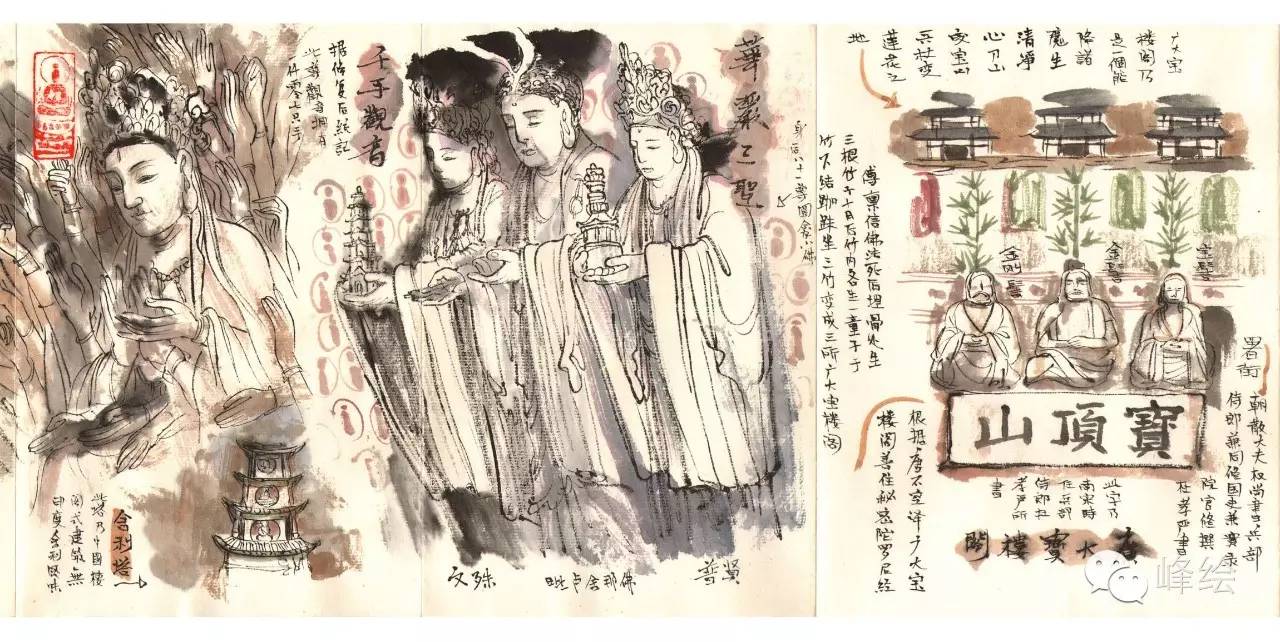 廣大寶
樓閣乃
是一個能
降諸
魔生
清淨
心刀山
成宝山
兵杖变
蓮花之
地
華嚴三聖
身后八十一尊圓龛小佛
千手觀音
据修复后统計
此尊觀音拥有
傳禀信佛法死后埋骨处生
三根竹子十月后竹内各生一童子于
竹下结跏趺坐三竹变成三所广大宝楼阁
金剛髻
金髻
宝髻
署銜
朝散大夫权尚書兵部
侍郎兼同修国史兼實录
院官修撰
杜孝严書
寶頂山
此字乃
南宋時
任兵部
侍郎杜
孝严所
書
根据唐不空译广大宝
楼阁善住秘密陀罗尼经
廣大寶樓閣
普賢
毗卢舍那佛
文殊
舍利塔
此塔乃中國楼
阁式建築無
印度舍利风味
峰绘